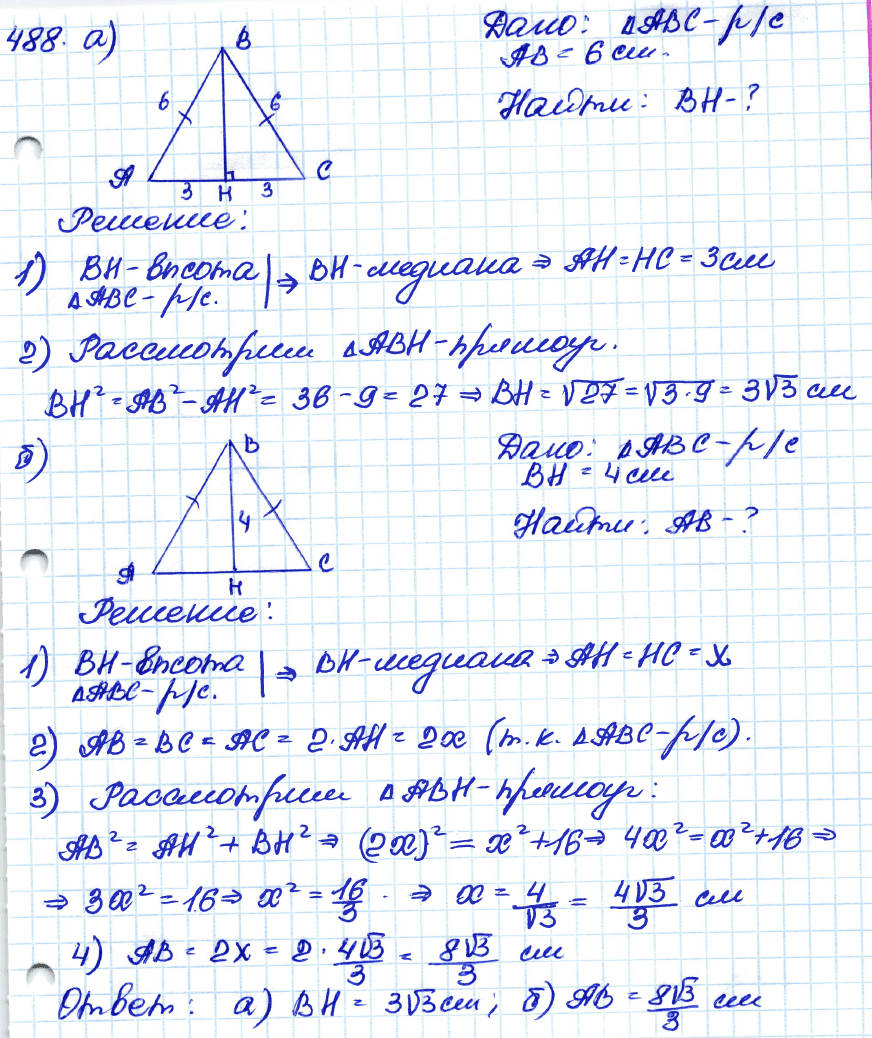 488. а)
B
6
6
A
3
H
3
C
Дано: ΔABC - р/с
AB = 6 см.
Найти: BH - ?
Решение:
1) BH - высота | ⇒ BH - медиана ⇒ AH = HC = 3 см
ΔABC - р/с.
2) Рассмотрим ΔABH - прямоуг.
BH² = AB² - AH² = 36 - 9 = 27 ⇒ BH = √27 = √3·9 = 3√3 см
б)
B
4
A
H
C
Дано: ΔABC - р/с
BH = 4 см
Найти: AB - ?
Решение:
1) BH - высота | ⇒ BH - медиана ⇒ AH = HC = x
ΔABC - р/с.
2) AB = BC = AC = 2·AH = 2x (т.к. ΔABC - р/с).
3) Рассмотрим ΔABH - прямоуг:
AB² = AH² + BH² ⇒ (2x)² = x² + 16 ⇒ 4x² = x² + 16 ⇒
⇒ 3x² = 16 ⇒ x² = 16/3 · ⇒ x = 4/√3 = 4√3/3 см
4) AB = 2x = 2 · 4√3/3 = 8√3/3 см
Ответ: а) BH = 3√3 см; б) AB = 8√3/3 см